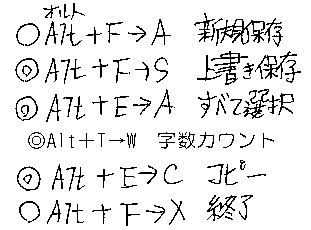 オルト
○Alt+F→A 新規保存
◎Alt+F→S 上書き保存
◎Alt+E→A すべて選択
◎Alt+T→W 字数カウント
◎Alt+E→C コピー
○Alt+F→X 終了